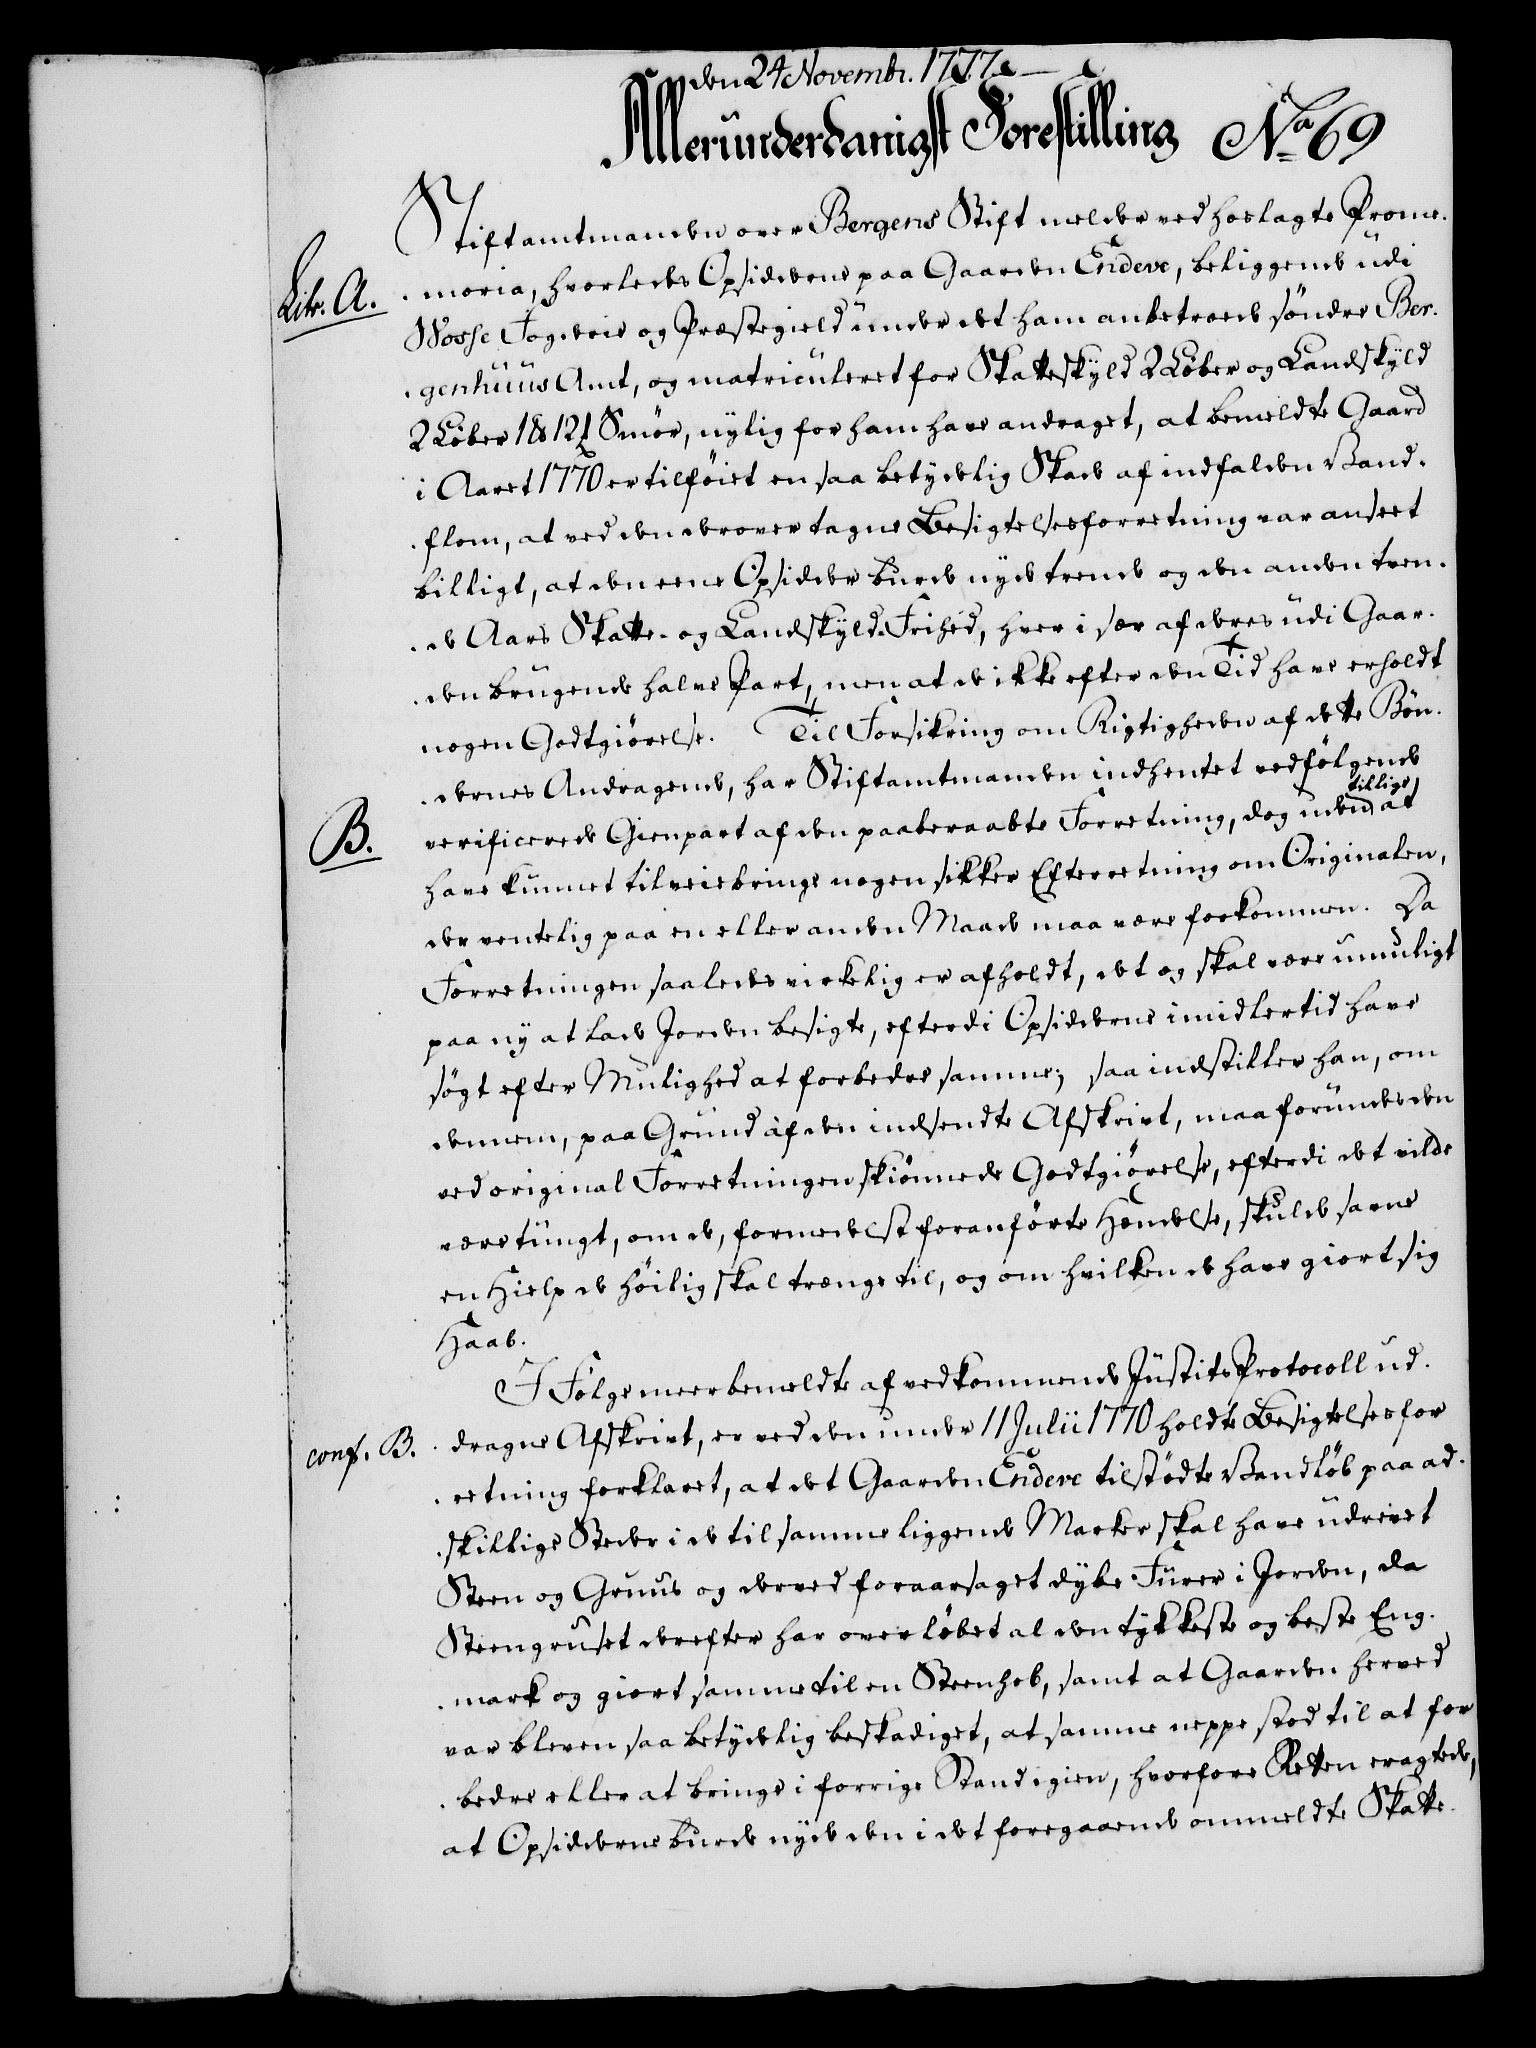 den 24 Novembr. 1777.
Allerunderdanigst Forestilling Na 69
Stiftamtmanden over Bergens Stift melder ved hoslagte Prome-
Litr. A. moria, hvorledes Opsidderne paa Gaarden Endeve, beliggende udi
Wosse Fogderie og Præstegield under det ham anbetroede söndre Ber-
genhuus Amt, og matriculeret for Skatteskyld 2 Löber og Landskyld
2 Löber 1 12 Smör, nylig for ham have andraget, at bemeldte Gaard
i Aaret 1770 er tilföiet en saa betydelig Skade af indfalden Vand-
flom, at ved den derover tagne Besigtelsesforretning var anseet
billigt, at den eene Opsidder burde nyde trende og den anden tven-
de Aars Skatte- og Landskyld-Frihed, hver i sær af deres udi Gaar-
den brugende halve Part, men at de ikke efter den Tid have erholdt
nogen Godtgiörelse. Til Forsikring om Rigtigheden af dette Bön-
dernes Andragende, har Stiftamtmanden indhentet vedfölgende
B. verificerede Gienpart af den paaberaabte Forretning, dog uden tillige at
have kunnet tilveiebringe nogen sikker Efterretning om Originalen,
der ventelig paa en eller anden Maade maa være forkommen. Da
Forretningen saaledes virkelig er afholdt, det og skal være umuligt
paa ny at lade Jorden besigte, efterdi Opsidderne imidlertid have
sögt efter Mulighed at forbedre samme; saa indstiller han, om
dennem, paa Grund af den indsendte Afskrivt, maa forundes den
ved original Forretningen skiönnede Godtgiörelse, efterdi det vilde
være tungt, om de, formedelst foranförte Hændelse, skulde savne
en Hielp de höilig skal trænge til, og om hvilken de have giort sig
Haab.
I Fölge meerbemeldte af vedkommende Justits Protocoll ud-
conf. B. dragne Afskrivt, er ved den under 11 Julii 1770 holdte Besigtelsesfor
retning forklaret, at det Gaarden Endeve tilstödte Vandlöb paa ad-
skillige Steder i de til samme liggende Marker skal have udrevet
Steen og Gruus og derved foraarsaget dybe Furer i Jorden, da
Steengruset derefter har overlöbet al den tykkeste og beste Eng-
mark og giort samme til en Steenhob, samt at Gaarden herved
var bleven saa betydelig beskadiget, at samme neppe stod til at for
bedre eller at bringe i forrige Stand igien, hvorfore Retten eragtede,
at Opsidderne burde nyde den i det foregaaende ommeldte Skatte-